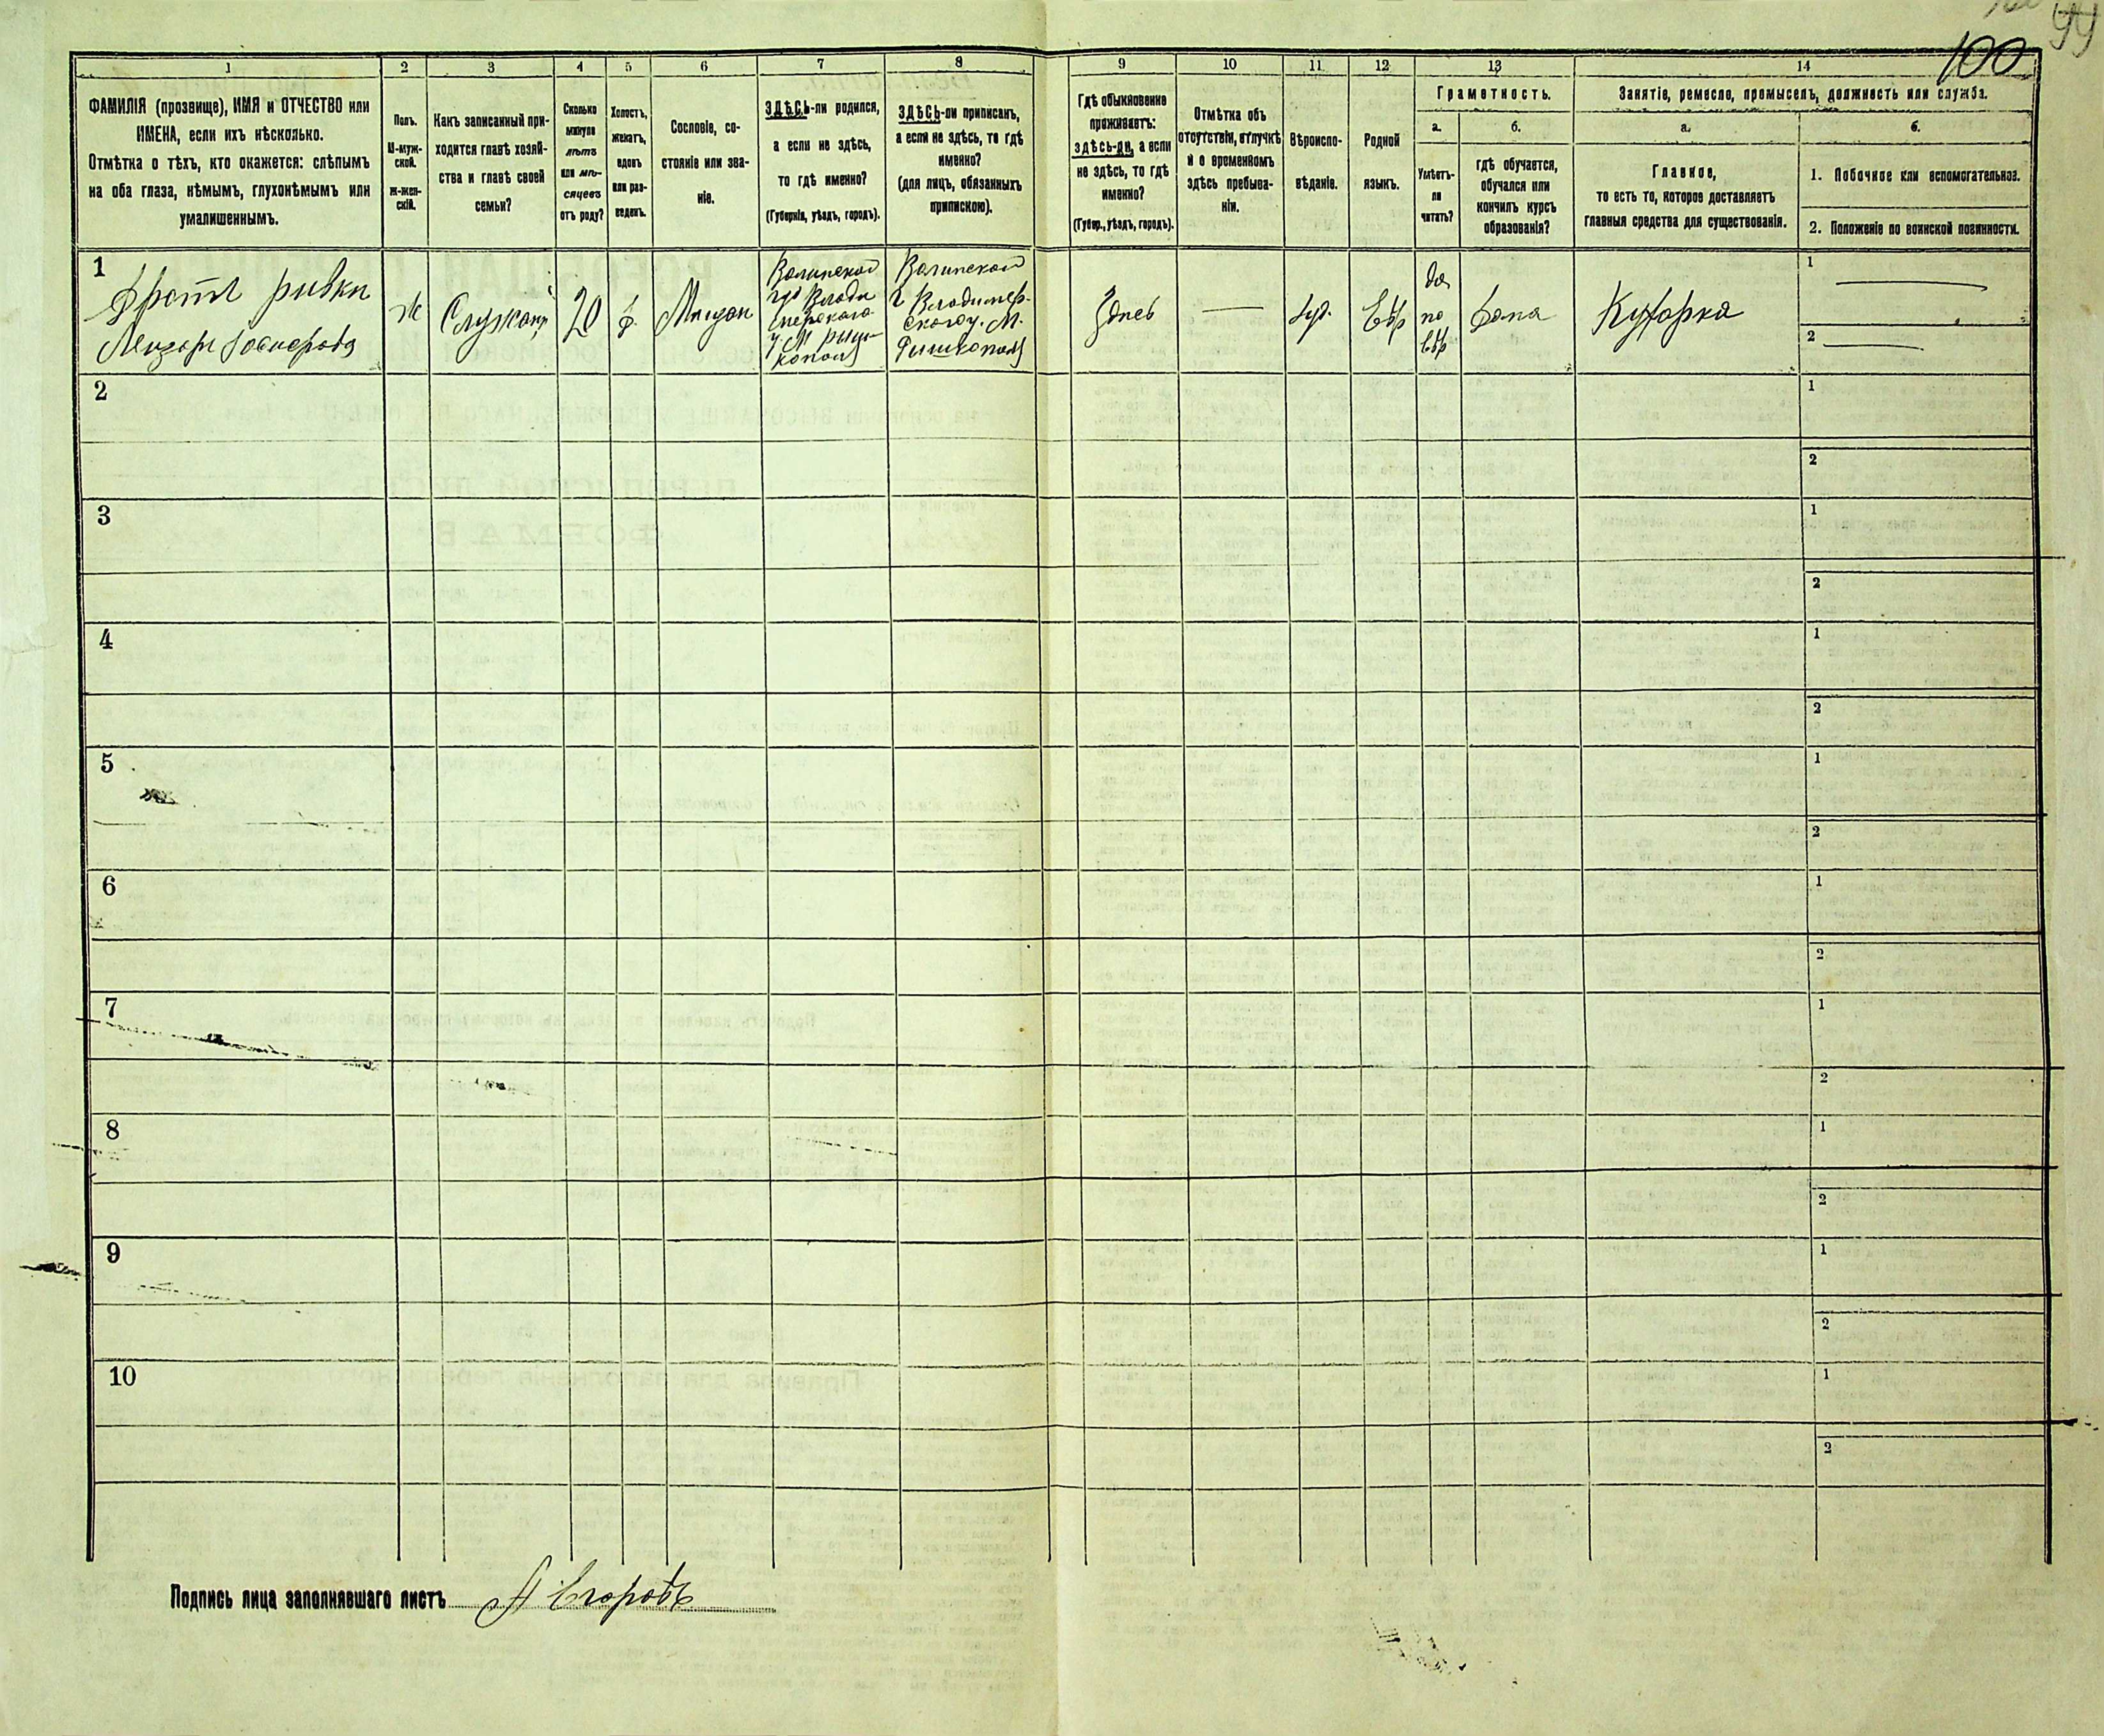 99
100
1
2
3
4
5
6
7
8
9
10
11
12
13
14
ФАМИЛІЯ (прозвище), ИМЯ и ОТЧЕСТВО или
ИМЕНА, если ихъ нѣсколько.
Отмѣтка о тѣхъ, кто окажется: слѣпымъ
на оба глаза, нѣмымъ, глухонѣмымъ или
умалишеннымъ.
Полъ.
М-муж-
ской.
ж-жен-
скій.
Какъ записанный при-
ходится главѣ хозяй-
ства и главѣ своей
семьи?
Сколько
минуло
лѣтъ
или мѣ-
сяцевъ
отъ роду?
Холостъ,
женатъ,
вдовъ
или раз-
веденъ.
Сословіе, со-
стояніе или зва-
ніе.
ЗДѢСЬ-ли родился,
а если не здѣсь,
то гдѣ именно?
(Губернія, уѣздъ, городъ).
ЗДѢСЬ-ли приписанъ,
а если не здѣсь, то гдѣ
именно?
(для лицъ, обязанныхъ
припискою).
Гдѣ обыкновенно
проживаетъ:
здѣсь-ли, а если
не здѣсь, то гдѣ
именно?
(Губер., уѣздъ, городъ).
Отмѣтка объ
отсутствіи, отлучкѣ
и о временномъ
здѣсь пребыва-
ніи.
Вѣроиспо-
вѣданіе.
Родной
языкъ.
Грамотность.
а.
Умѣетъ-
ли
читать?
б.
гдѣ обучается,
обучался или
кончилъ курсъ
образованія?
Занятіе, ремесло, промыселъ, должность или служба.
а.
Главное,
то есть то, которое доставляетъ
главныя средства для существованія.
б.
1. Побочное или вспомогательное.
2. Положеніе по воинской повинности.
1
ривки
Ж
20
Волынской
Волынской
Здесь
Іуд.
Евр
да
по
евр
Дома
Кухарка
1
2
2
1
2
3
1
2
4
1
2
5
1
2
6
1
2
7
1
2
8
1
2
9
1
2
10
1
2
Подпись лица заполнявшаго листъ